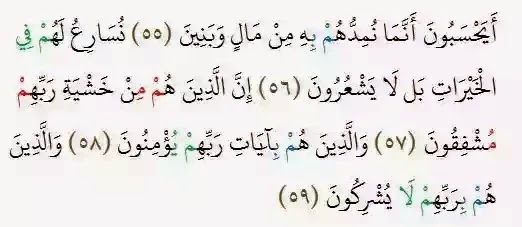 أَيَحْسَبُونَ أَنَّمَا نُمِدُّهُمْ بِهِ مِنْ مَالٍ وَبَنِينَ (٥٥) نُسَارِعُ لَهُمْ فِي
الْخَيْرَاتِ بَل لَا يَشْعُرُونَ (٥٦) إِنَّ الَّذِينَ هُمْ مِنْ خَشْيَةِ رَبِّهِمْ
مُشْفِقُونَ (٥٧) وَالَّذِينَ هُمْ بِآيَاتِ رَبِّهِمْ يُؤْمِنُونَ (٥٨) وَالَّذِينَ
هُمْ بِرَبِّهِمْ لَا يُشْرِكُونَ (٥٩)